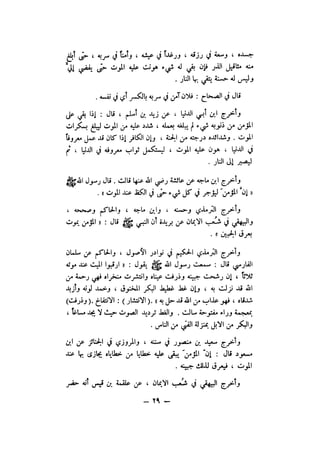 جسده ، وسعة في رزقه ، ورغداً في عيشه ، وأمناً في سربه ، حتى أبلغ
منه مثاقيل الذر فإن بقي له شيء هونت عليه الموت حتى يفضي إليّ
وليس له حسنة يتقي بها النار .
قال في الصحاح : فلان آمن في سربه بالكسر أي في نفسه .
وأخرج ابن أبـي الدنيا ، عن زيد بن أسلم ، قال : إذا بقي على
المؤمن من ذنوبه شيء لم يبلغه بعمله ، شدد عليه من الموت ليبلغ بسكرات
الموت . وشدائده درجته من الجنة ، وإن الكافر إذا كان قد عمل معروفاً
في الدنيا ، هون عليه الموت ، ليستكمل ثواب معروفه في الدنيا ، ثم
ليصير إلى النار .
وأخرج ابن ماجه عن عائشة رضي الله عنها قالت . قال رسول الله ﷺ
« إنّ المؤمن ليؤجر في كل شيء حتى في الكظ عند الموت » .
وأخرج الترمذي وحسنه ، وابن ماجه ، والحاكم وصححه ،
والبيهقي في شُعب الايمان عن بريدة أن النبـي ﷺ قال : « المؤمن يموت
بعرق الجبين » .
وأخرج الترمذي الحكيم في نوادر الأصول ، والحاكم عن سلمان
الفارسي قال : سمعت رسول الله ﷺ يقول : « ارقبوا الميت عند موته
ثلاثاً ، إن رشحت جبينه وذرفت عيناه وانتشرت منخراه فهي رحمة من
الله قد نزلت به ، وإن غط غطيط البكر المخنوق ، وخمد لونه وأزبد
شدقاه ، فهو عذاب من الله قد حل به » . ( الانتشار ) : الانتفاخ . ( وذرفت )
بمعجمة وراء مفتوحة سالت . والغط ترديد الصوت حيث لا يجد مساغاً ،
والبكر من الابل بمنزلة الفتي من الناس .
وأخرج سعيد بن منصور في سننه ، والمروزي في الجنائز عن ابن
مسعود قال : إنّ المؤمن يبقى عليه خطايا من خطاياه يجازى بها عند
الموت ، فيعرق لذلك جبينه .
وأخرج البيهقي في شُعب الايمان ، عن علقمة بن قيس أنه حضر
– ٢٩ –